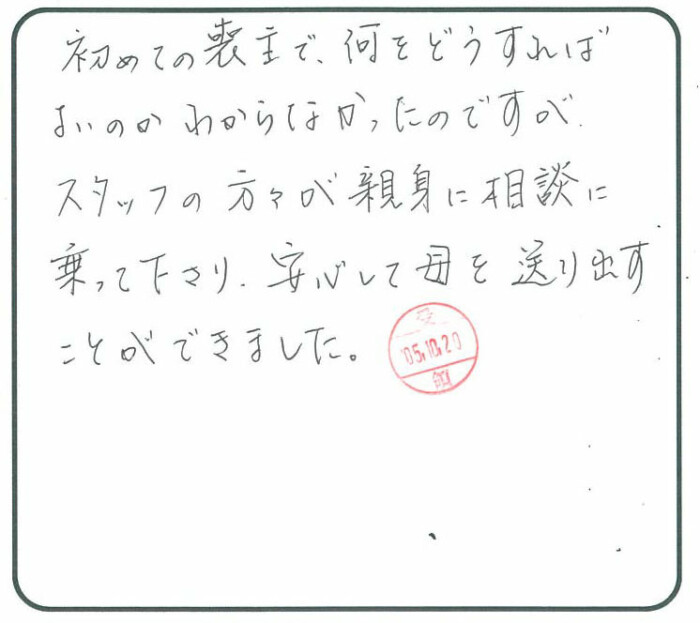 初めての喪主で、何をどうすれば
よいのかわからなかったのですが、
スタッフの方々が親身に相談に
乗って下さり、安心して母を送り出す
ことができました。
受
'05.10.20